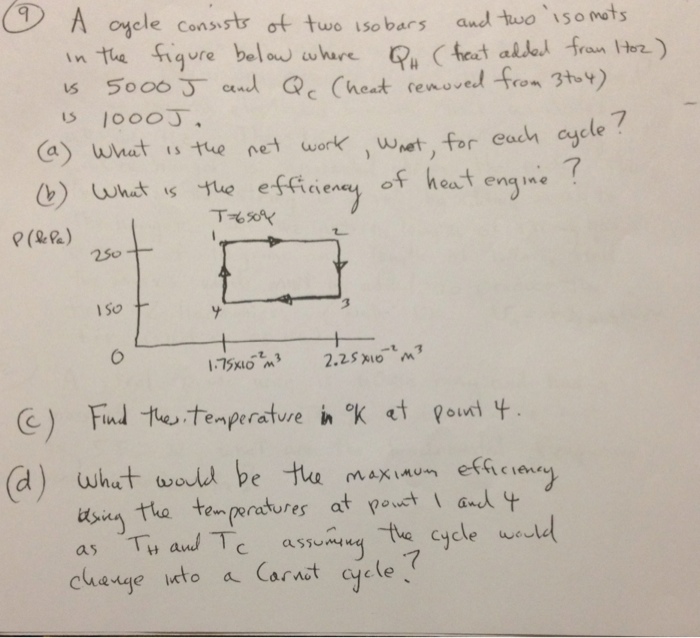 9 A cycle consists of two isobars and two isomets
in the figure below where QH (heat added from 1to2)
is 5000 J and Qc (heat removed from 3to4)
is 1000J.
(a) What is the net work, Wnet, for each cycle?
(b) What is the efficiency of heat engine?
T=650K
P(kPa)
1 2
250
150
4 3
0
1.75x10⁻²m³ 2.25x10⁻²m³
(c) Find the temperature in °K at point 4.
(d) What would be the maximum efficiency
using the temperatures at point 1 and 4
as TH and Tc assuming the cycle would
change into a Carnot cycle?